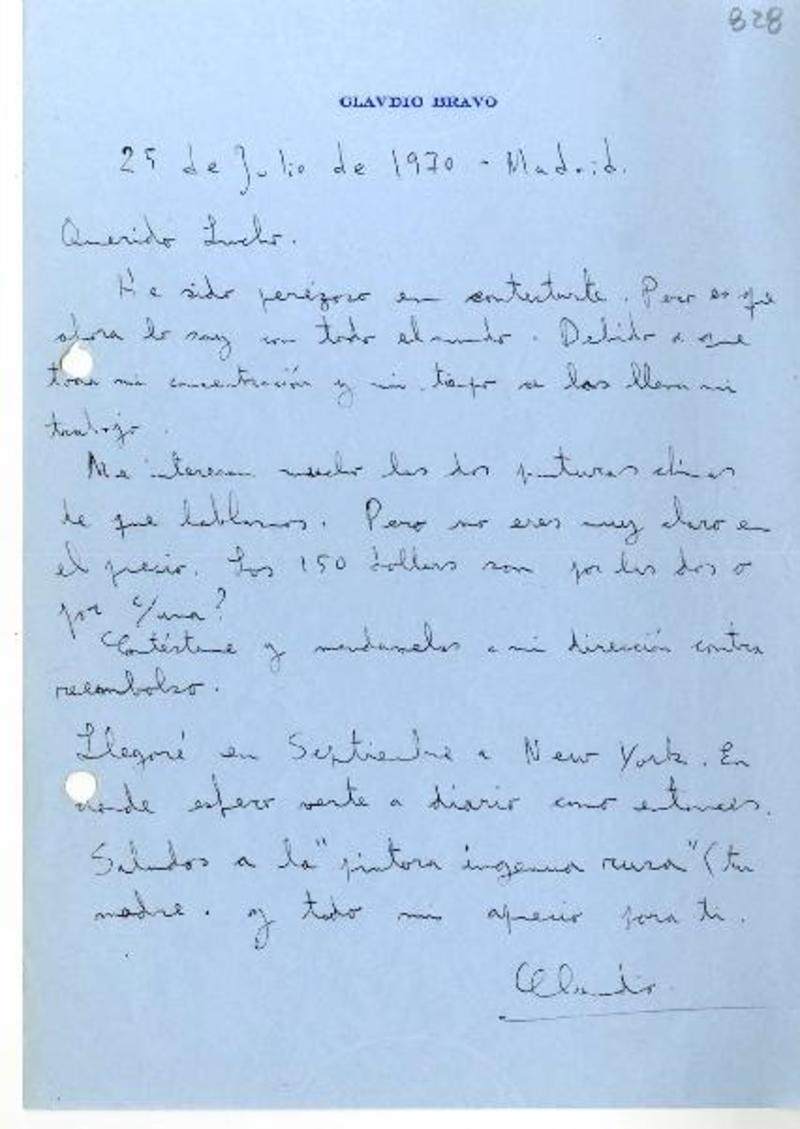 828
CLAVDIO BRAVO
25 de Julio de 1970 - Madrid.
Querido Lucho.
He sido perezoso en contestarte. Pero es que
ahora lo soy con todo el mundo. Debido a que
toda mi concentración y mi tiempo se las lleva mi
trabajo.
Me interesan mucho las dos pinturas chinas
de que hablamos. Pero no eres muy claro en
el precio. Los 150 dollars son por las dos o
por c/una?
Contéstame y mandamelas a mi dirección contra
reembolso.
Llegaré en Septiembre a New York. En
donde espero verte a diario como entonces.
Saludos a la "pintora ingenua rusa" (tu
madre. y todo mi aprecio para ti.
Claudio.